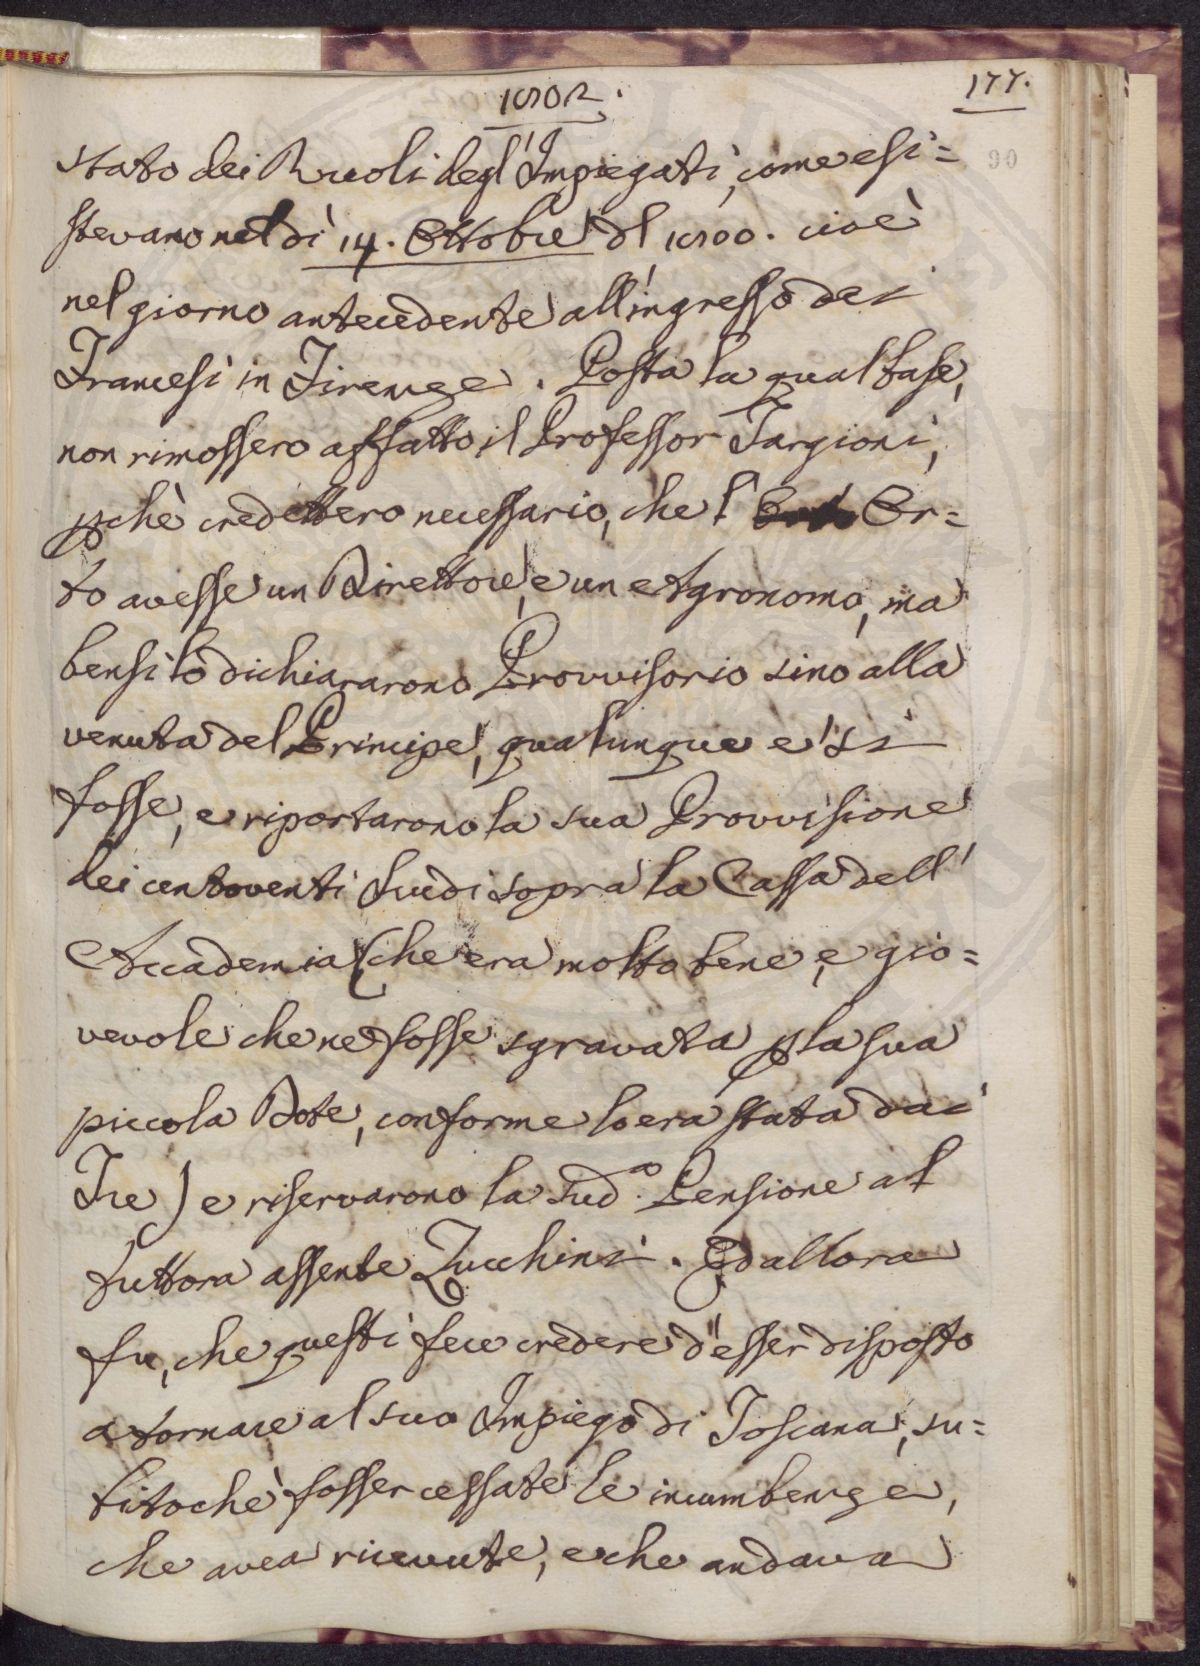 1802.
177.
90
stato dei Ruoli degl'Impiegati, come esi=
stevano nel dì 14. Ottobre del 1800. cioè
nel giorno antecedente all'ingresso dei
Francesi in Firenze. Posta la qual base,
non rimossero affatto il Professor Targioni,
pchè credettero necessario, che l' Or=
to avesse un Direttore, e un Agronomo, ma
bensì lo dichiararono Provvisorio sino alla
venuta del Principe, qualunque e' si
fosse, e riportarono la sua Provvisione
dei centoventi Scudi sopra la Cassa dell'
Accademia (che era molto bene, e gio=
vevole che ne fosse sgravata p la sua
piccola Dote, conforme lo era stata dai
Tre) e riservarono la sud.a Pensione al
tuttora assente Zucchini. Ed allora
fu, che questi fece credere d'esser disposto
a tornare al suo Impiego di Toscana, su=
bitochè fosser cessate le incumbenze,
che avea ricevute, e che andava